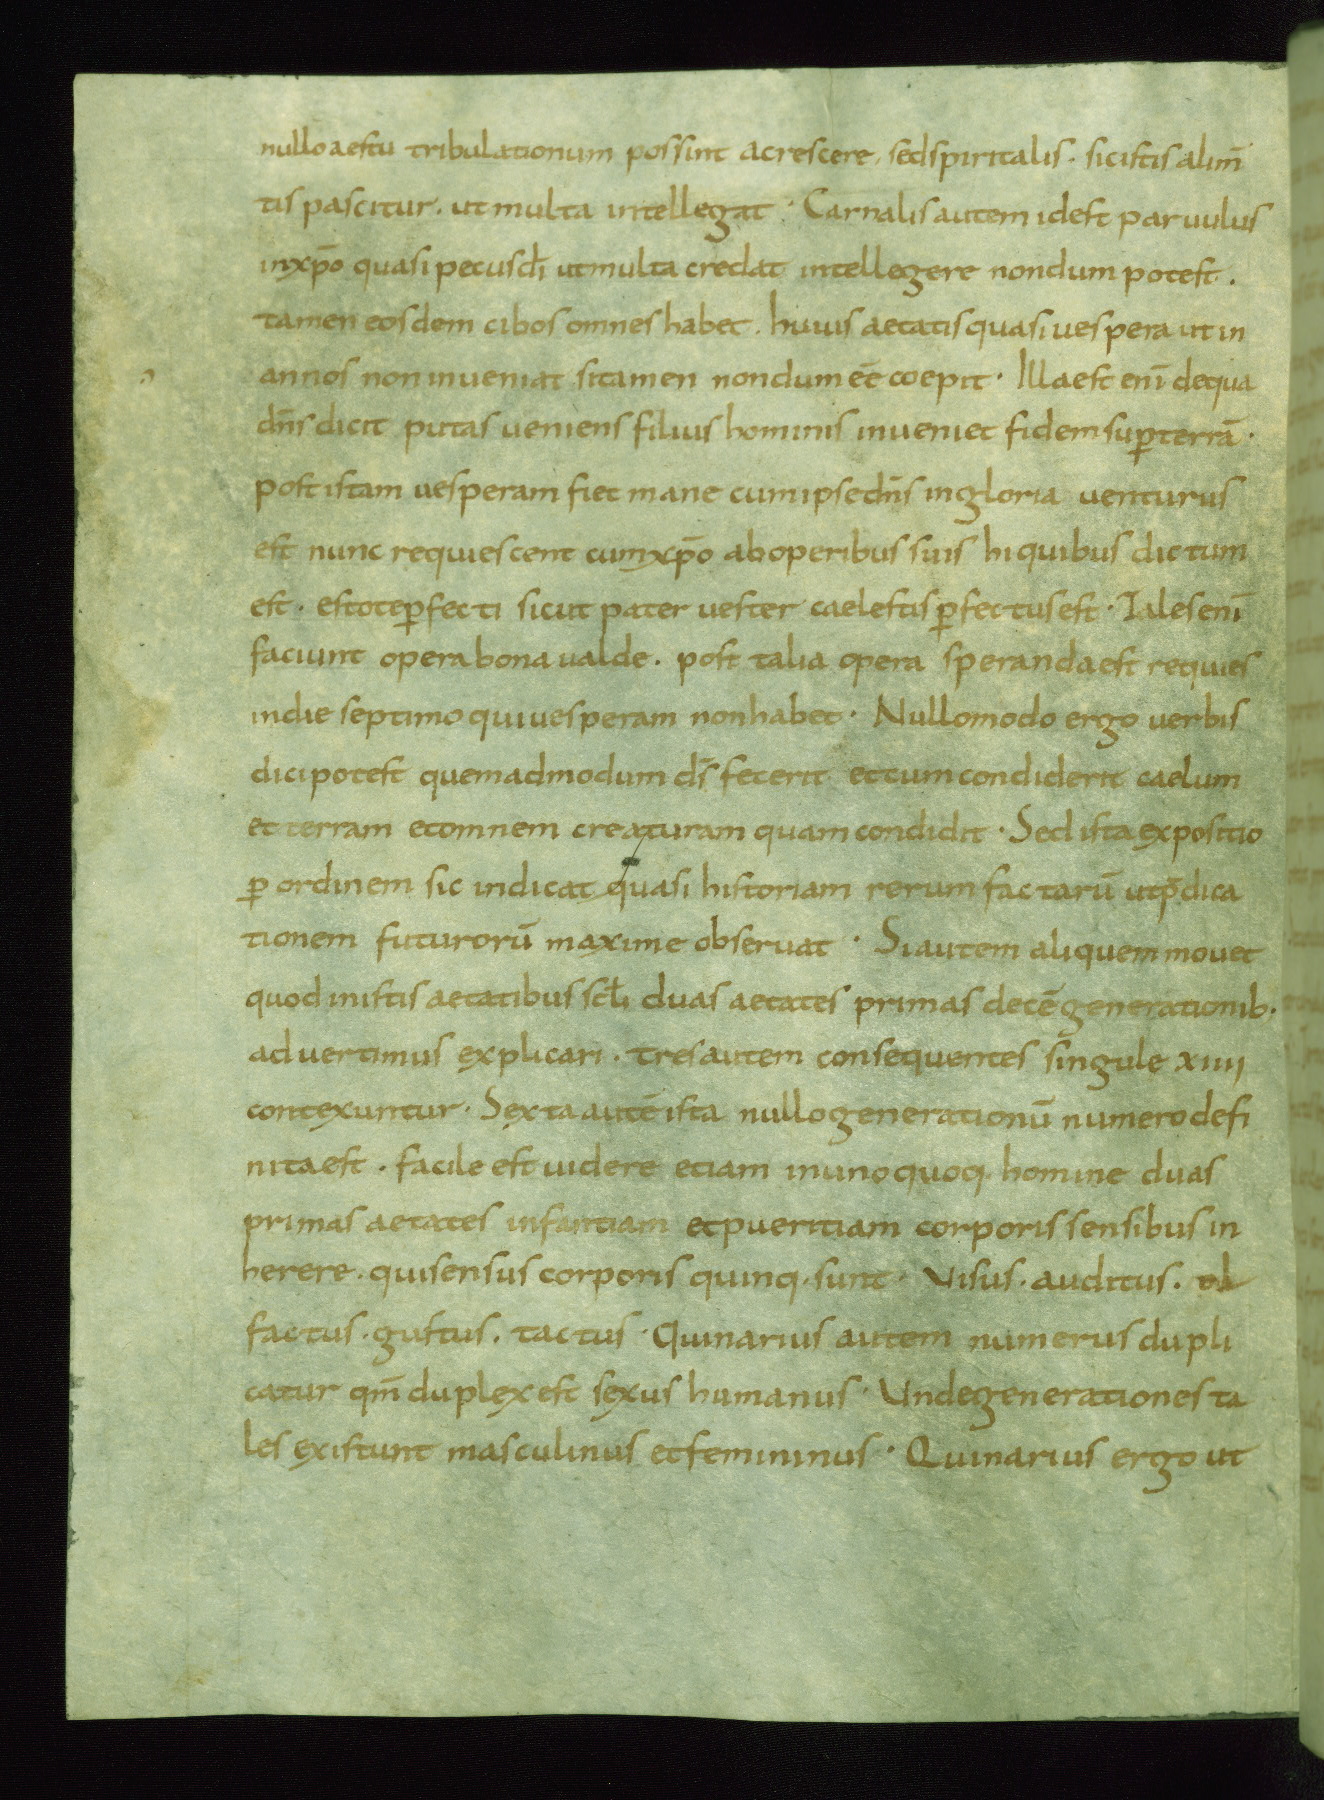 nullo aestu tribulationum possint acrescere. sed spiritalis. sic istis alim̄
tis pascitur. ut multa intellegat. Carnalis autem idest paruulus
in xp̄o quasi pecus dī ut multa credat intellegere nondum potest.
tamen eosdem cibos omnes habet. huius aetatis quasi uespera ut in
annos non inueniat si tamen nondum eē coepit. Illa est enī de qua
dn̄s dicit putas ueniens filius hominis inueniet fidem suꝑ terrā.
post istam uesperam fiet mane cum ipse dn̄s in gloria uenturus
est nunc requiescent cum xp̄o ab operibus suis hi quibus dictum
est. estote ꝑfecti sicut pater uester caelestis ꝑfectus est. Tales enī
faciunt opera bona ualde. post talia opera speranda est requies
in die septimo qui uesperam non habet. Nullo modo ergo uerbis
dici potest quemadmodum dī fecerit et cum condiderit caelum
et terram et omnem creaturam quam condidit. Sed ista expositio
ꝑ ordinem sic indicat quasi historiam rerum factarū ut p̄dica
tionem futurorū maxime obseruat. Si autem aliquem mouet
quod in istis aetatibus sc̄li duas aetates primas decē generationib.
aduertimus explicari. tres autem consequentes singule xiiii
contexuntur. Sexta autē ista nullo generationū numero defi
nita est. facile est uidere etiam in unoquoq. homine duas
primas aetates infantiam et pueritiam corporis sensibus in
herere. qui sensus corporis quinq. sunt. Visus. auditus. ol
factus. gustus. tactus. Quinarius autem numerus dupli
catur qm̄ duplex est sexus humanus. Unde generationes ta
les existunt masculinus et femininus. Quinarius ergo ut